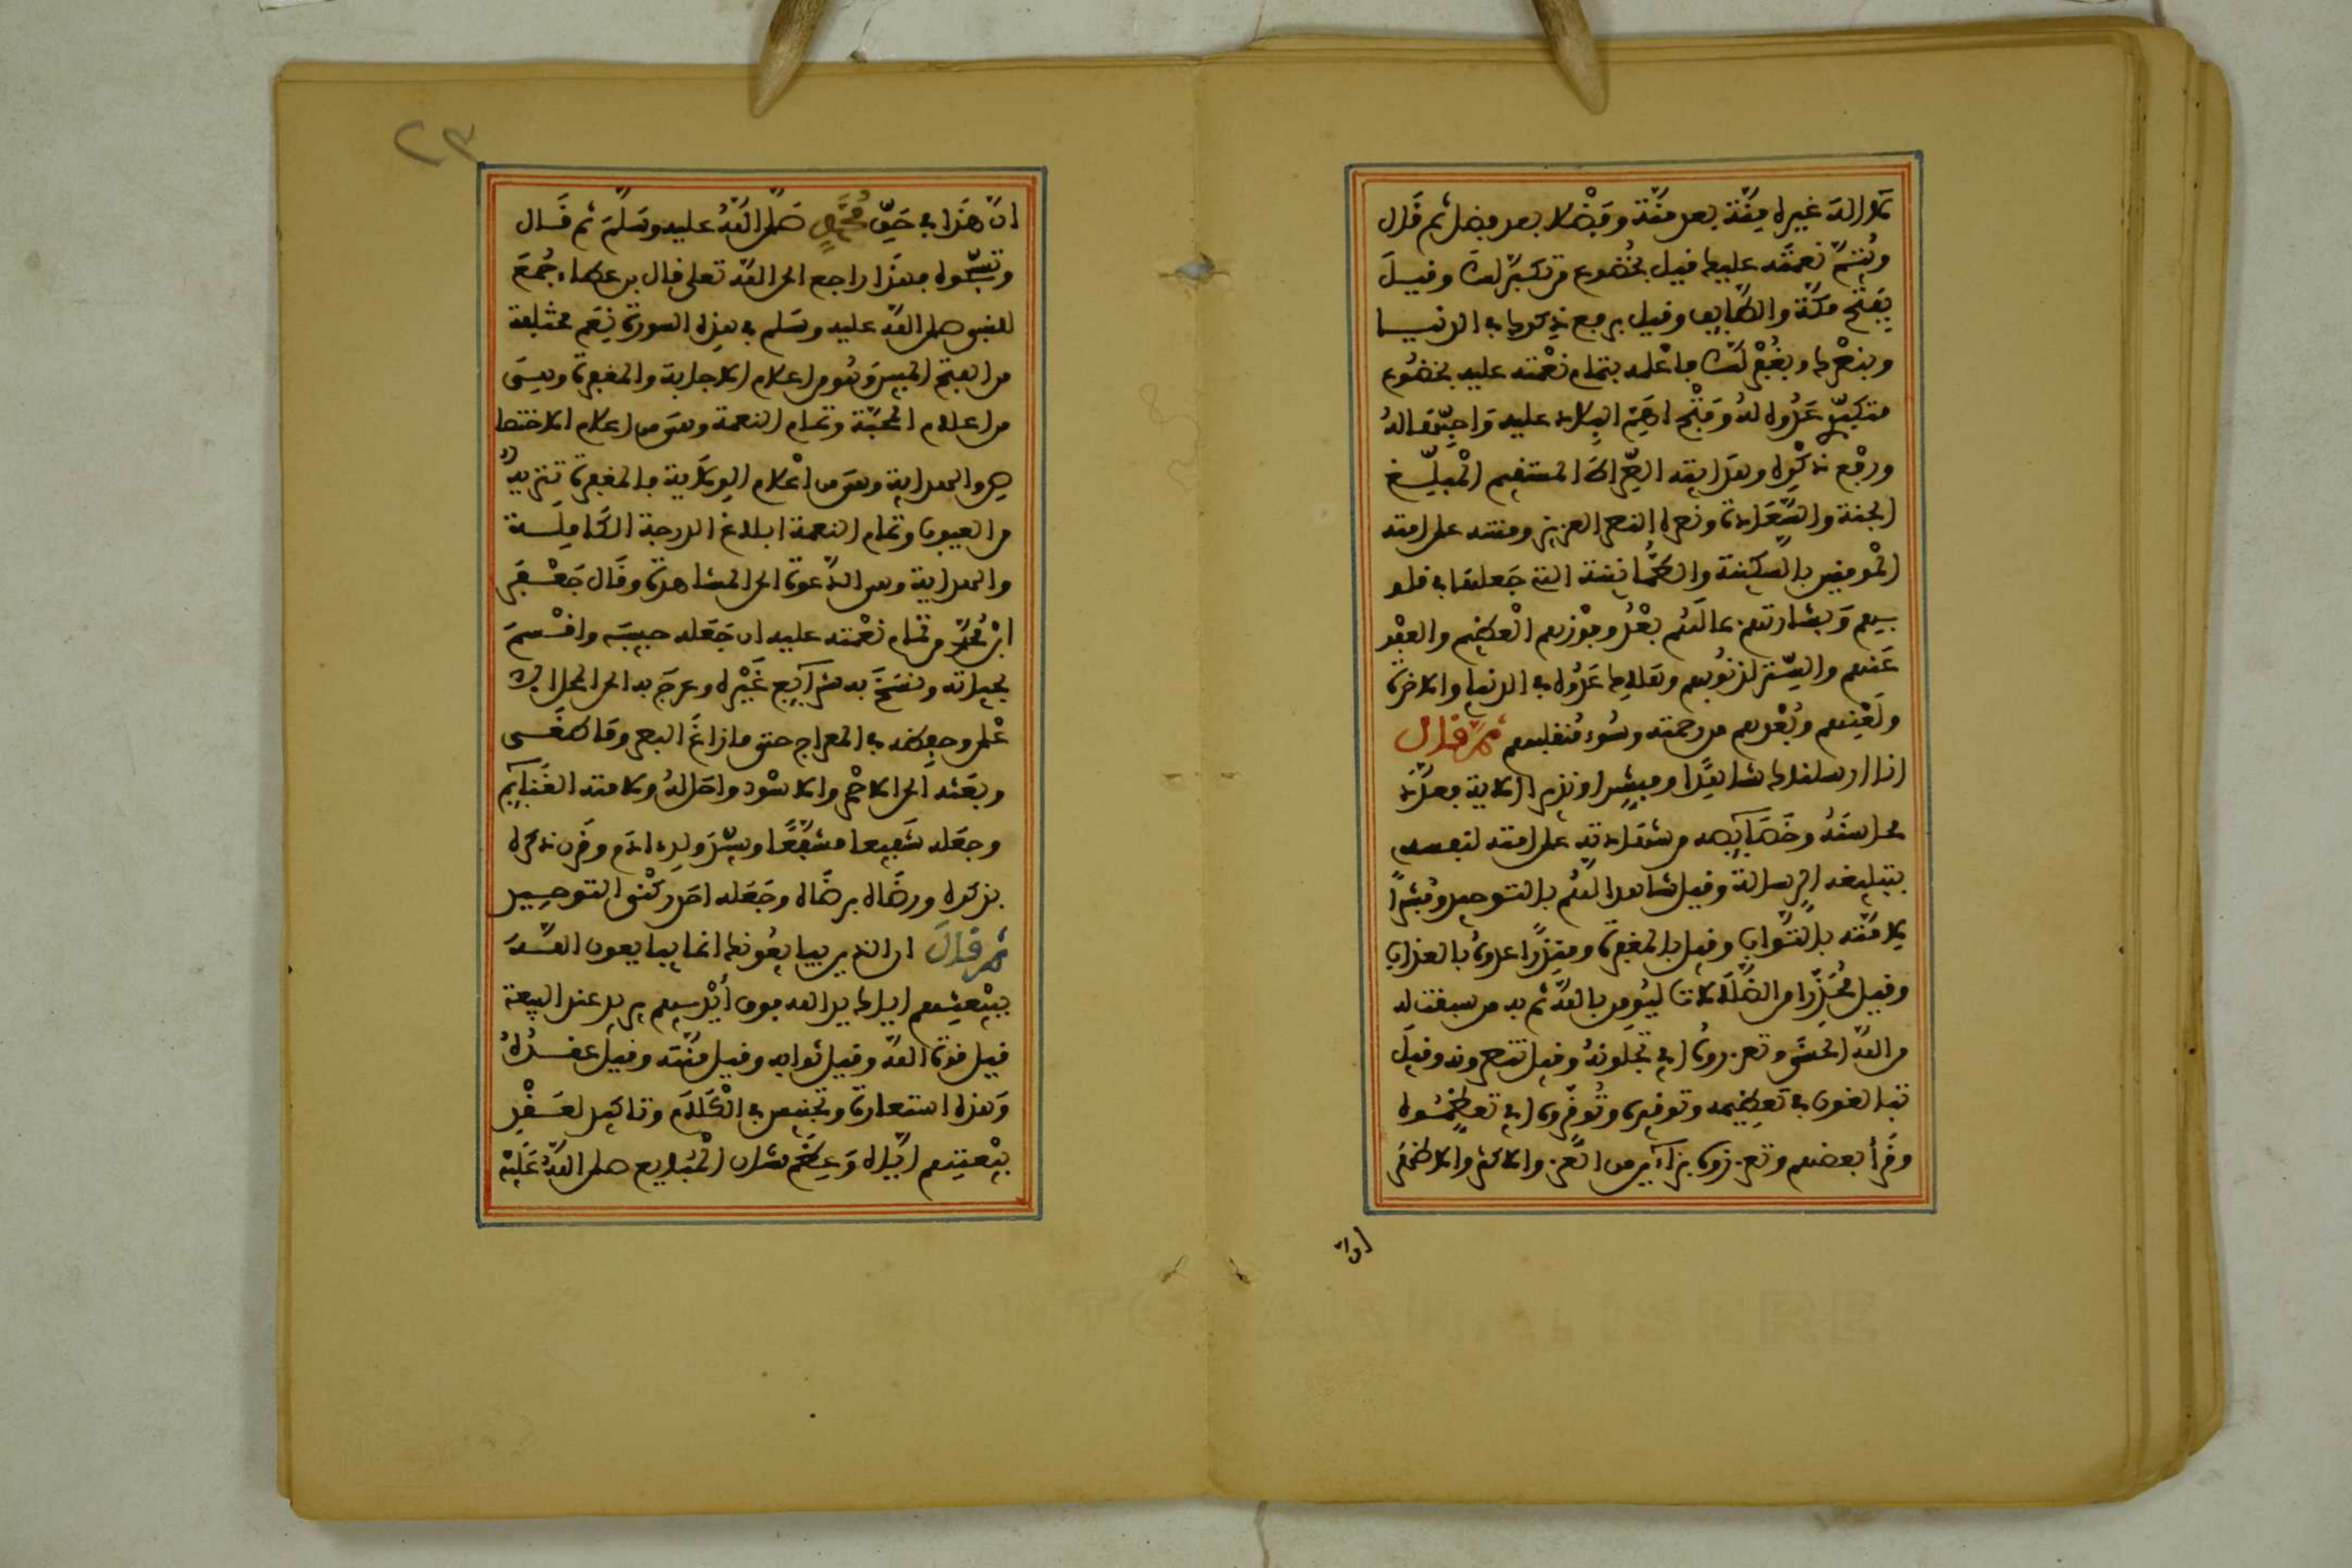 لا اله غيره مِنّة بعد منّة وفضلا بعد فضل ثم قال
ويُتمّ نعمته عليك فيل بخُضوع من تكبّر لك وفيل
بفتح مكّة والطايف وفيل يرفع ذكرك في الدنيا
وينصرك ويغفر لك فاعلمه بتمام نعمته عليه بخضوع
متكبّرى عدوه له وفتح اهمّ البلاد عليه واحبّها له
ورفع ذكره وهدايته الصراط المستقيم المبلّغ
الجنة والسّعادة ونصره النصر العزيز ومنته على امته
المومنين بالسكينة والطّمانينة التى جعلها في قلو
بهم وبشارتهم بما لهم بعدُ وفوزهم العظيم والعفو
عنهم والستر لذنوبهم وهلاك عدوه في الدنيا والاخرة
ولعنهم وبعدهم من رحمته وسوء منقلبهم ثم قال
انا ارسلناك شاهدا ومبشرا ونذيرا الاية فعدّد
محاسنه وخصايصه من شهادته على امته لنفسه
بتبليغه الرسالة وفيل شاهدا لهم بالتوحيد ومبشرا
لامّته بالثواب وفيل بالمغفرة ومنذرا عدوه بالعذاب
وفيل محذّرا من الضلالات ليُومن بالله ثم به من سبقت له
من الله الحسنى وتعزروه اي تجلّونه وفيل تنصرونه وفيل
تبالغون في تعظيمه وتوفروه وتوفّروه اي تعظموه
وفرأ بعضهم وتعززوه بزاءين من العز والاكثر والاظهر
ان
٢٣
انّ هذا في حقّ محمد صلى الله عليه وسلم ثم قال
وتسبّحوه فهذا راجع الى الله تعلى فال بن عطاء جُمع
للنبي صلى الله عليه وسلم في هذه السورة نِعَم مختلفة
من الفتح المبين وهو من اعلام الاجابة والمغفرة وهي
من اعلام المحبّة وتمام النعمة وهي من اعلام الاختصا
ص والهداية وهي من اعلام الولاية فالمغفرة تنزيه
من العيوب وتمام النعمة ابلاغ الدرجة الكاملة
والهداية وهي الدعوة الى المشاهدة وقال جعفر
ابن محمد من تمام نعمته عليه ان جعله حبيبه واقسم
بحياته ونسخ به شرآيع غيره وعرج به الى المحل الا
على وحفظه في المعراج حتى ما زاغ البصر وما طغى
وبعثه الى الاحمر والاسود واحل له ولامته الغنايم
وجعله شفيعا مشفّعا وسيّد ولد ادم وقرن ذكره
بذكره ورضاه برضاه وجعله احد ركنى التوحيد
ثم قال ان الذين يبايعونك انما يبايعون الله
ببيعتهم اياك يد الله فوق أيديهم يريد عند البيعة
فيل قوة الله وفيل ثوابه وفيل منّته وفيل عقدُه
وهذه استعارة وتجنيس في الكلام وتاكيد لعقد
بيعتهم ايّاه وعِظَم شان المبايع صلى الله عليه